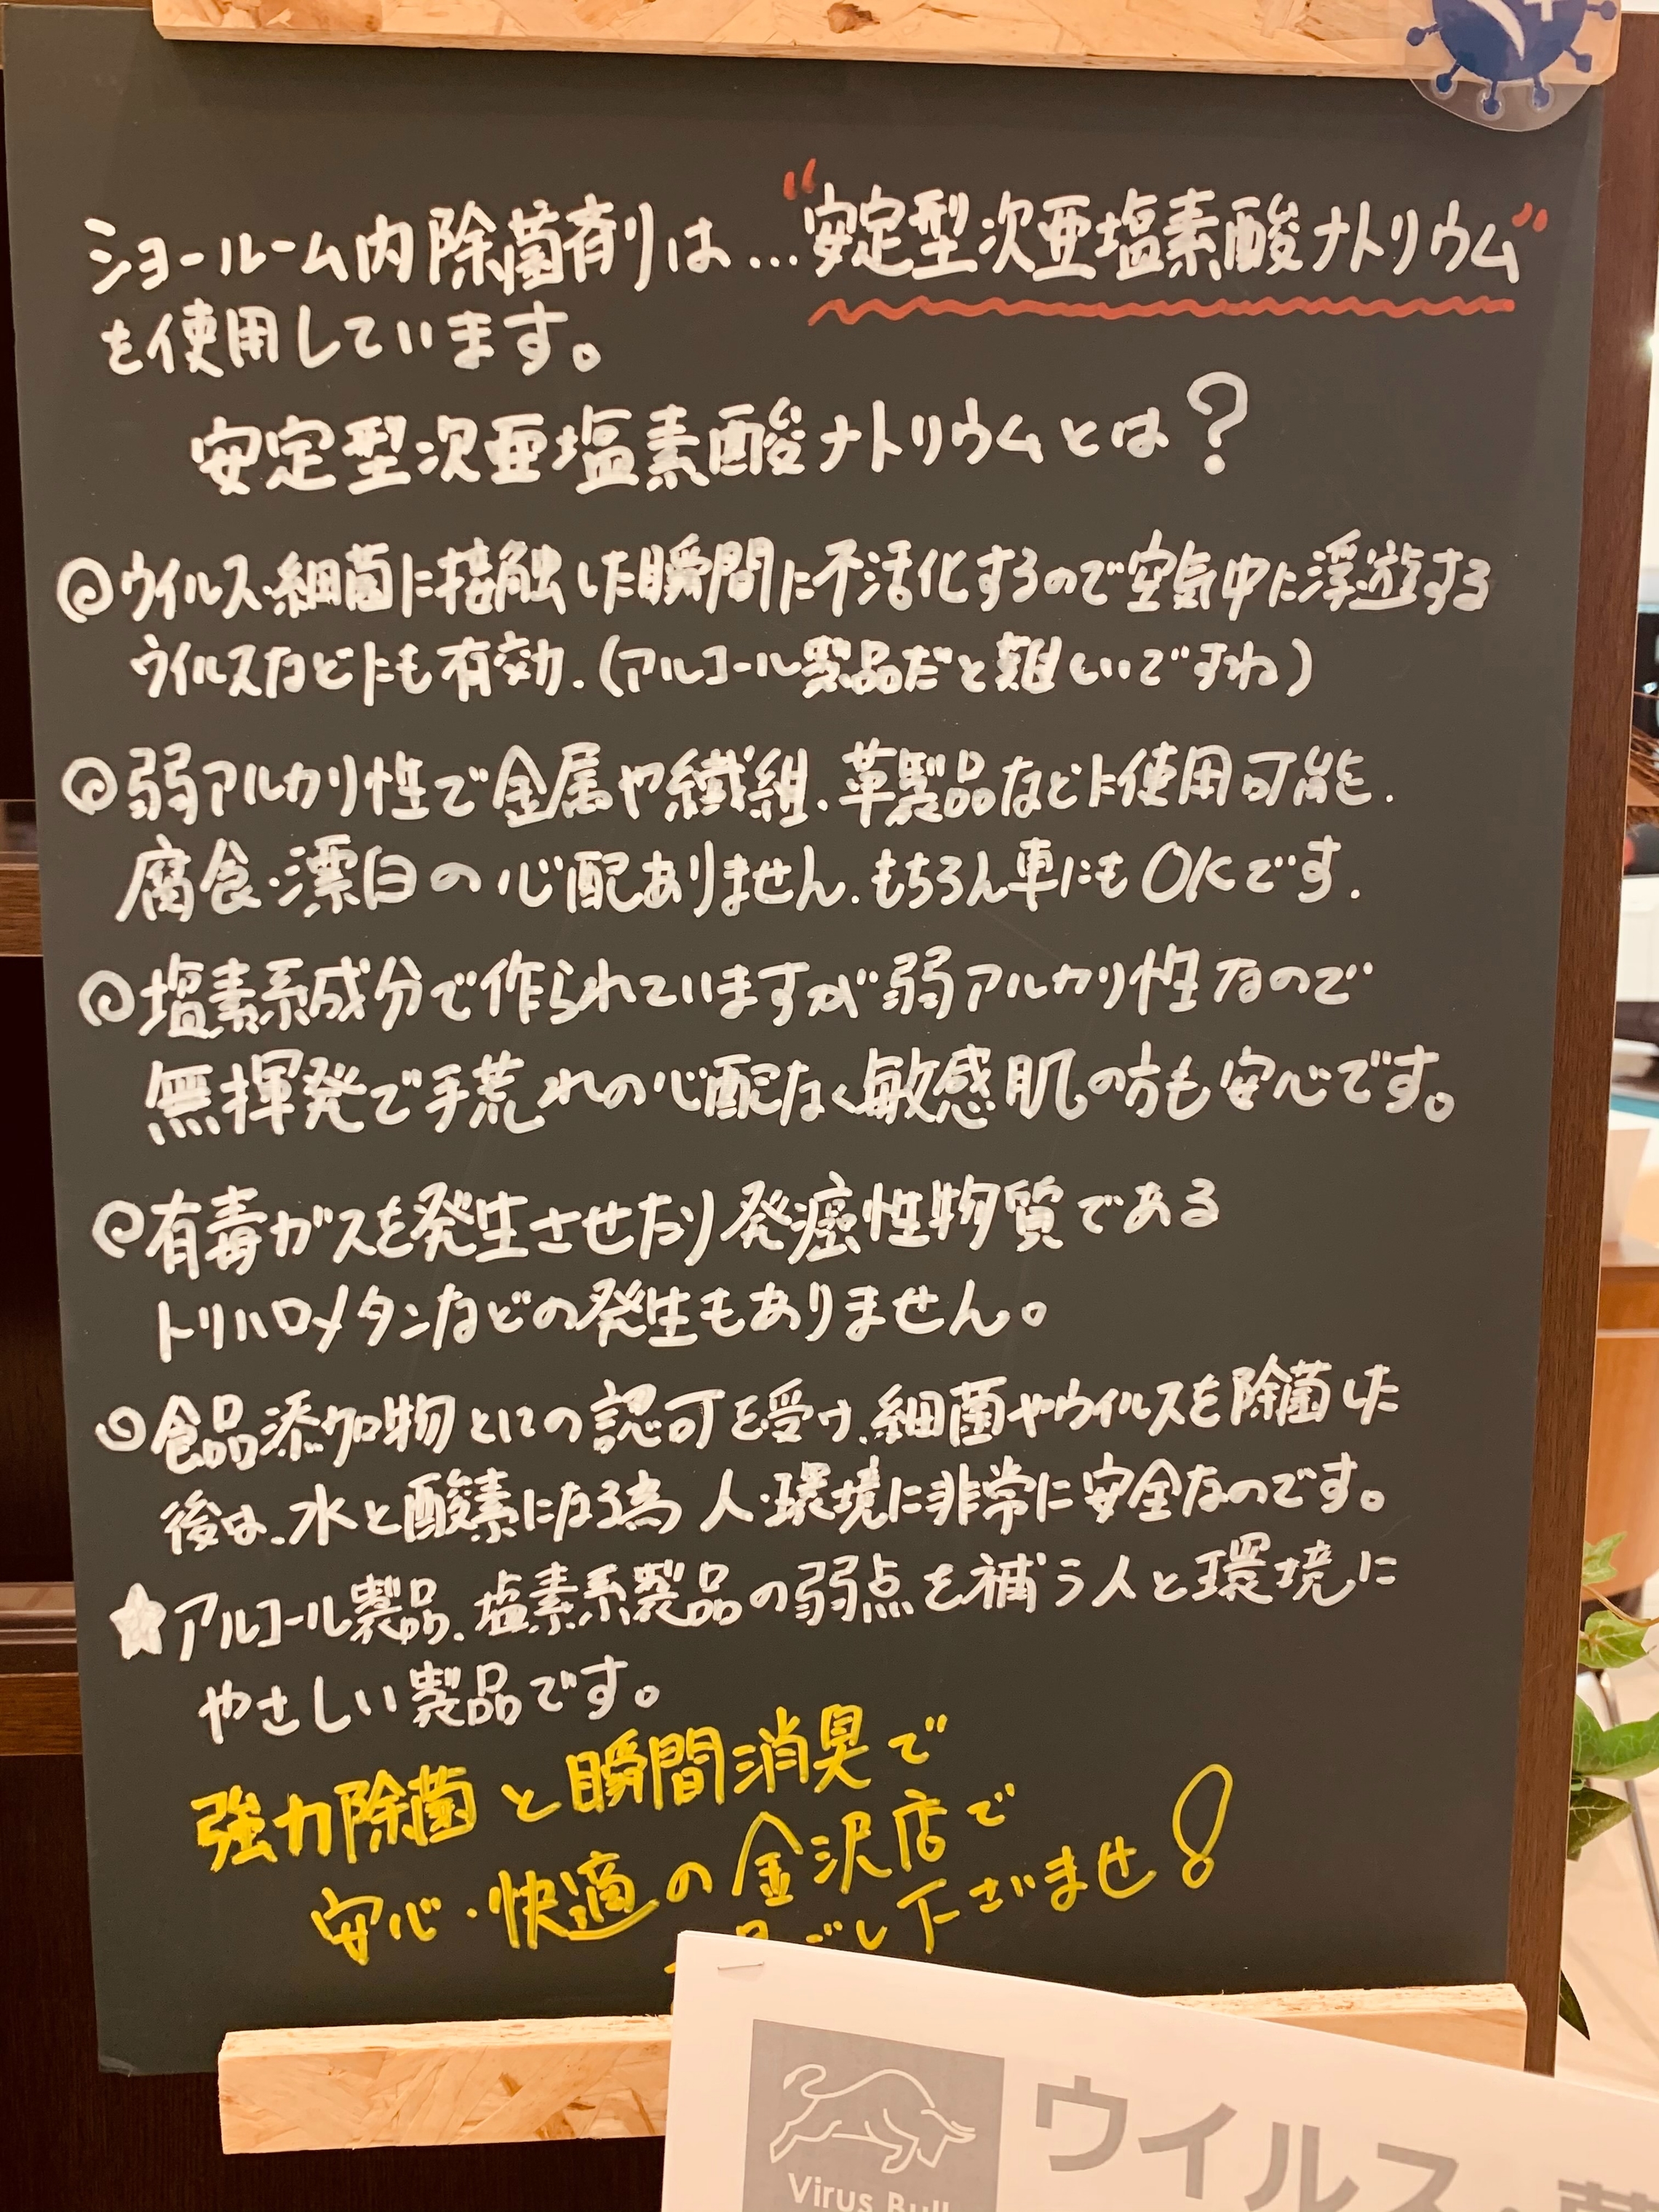 ショールーム内除菌剤は…"安定型次亜塩素酸ナトリウム"
を使用しています。
安定型次亜塩素酸ナトリウムとは?
◎ウイルス・細菌に接触した瞬間に不活化するので空気中に浮遊する
ウイルスなどにも有効.(アルコール製品だと難しいですね)
◎弱アルカリ性で金属や繊維.革製品などに使用可能.
腐食・漂白の心配ありません.もちろん車にもOKです.
◎塩素系成分で作られていますが弱アルカリ性なので
無揮発で手荒れの心配なく敏感肌の方も安心です。
◎有毒ガスを発生させたり発癌性物質である
トリハロメタンなどの発生もありません。
◎食品添加物としての認可を受け、細菌やウイルスを除菌した
後は、水と酸素になる為 人・環境に非常に安全なのです。
★アルコール製品、塩素系製品の弱点を補う人と環境に
やさしい製品です。
強力除菌と瞬間消臭で
安心・快適の金沢店で
ごし下ざませ!
Virus Bull
ウイルス・